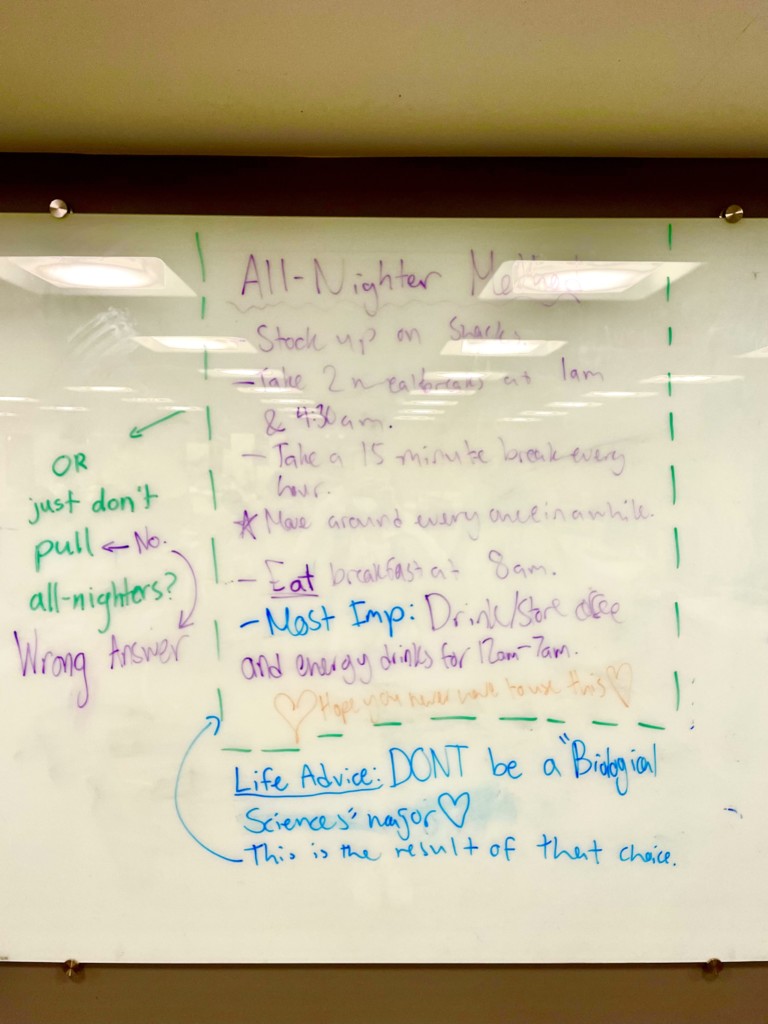 All-Nighter Method
- Stock up on Snacks
- Take 2 mealbreaks at 1am
& 4:30am.
- Take a 15 minute break every
hour.
☆ Move around every once in a while.
- Eat breakfast at 8am.
- Most Imp: Drink/store coffee
and energy drinks for 12am-7am.
♡ Hope you never have to use this ♡
OR
just don't
pull ← No.
all-nighters?
Wrong Answer
Life Advice: DONT be a "Biological
Sciences" major ♡
This is the result of that choice.